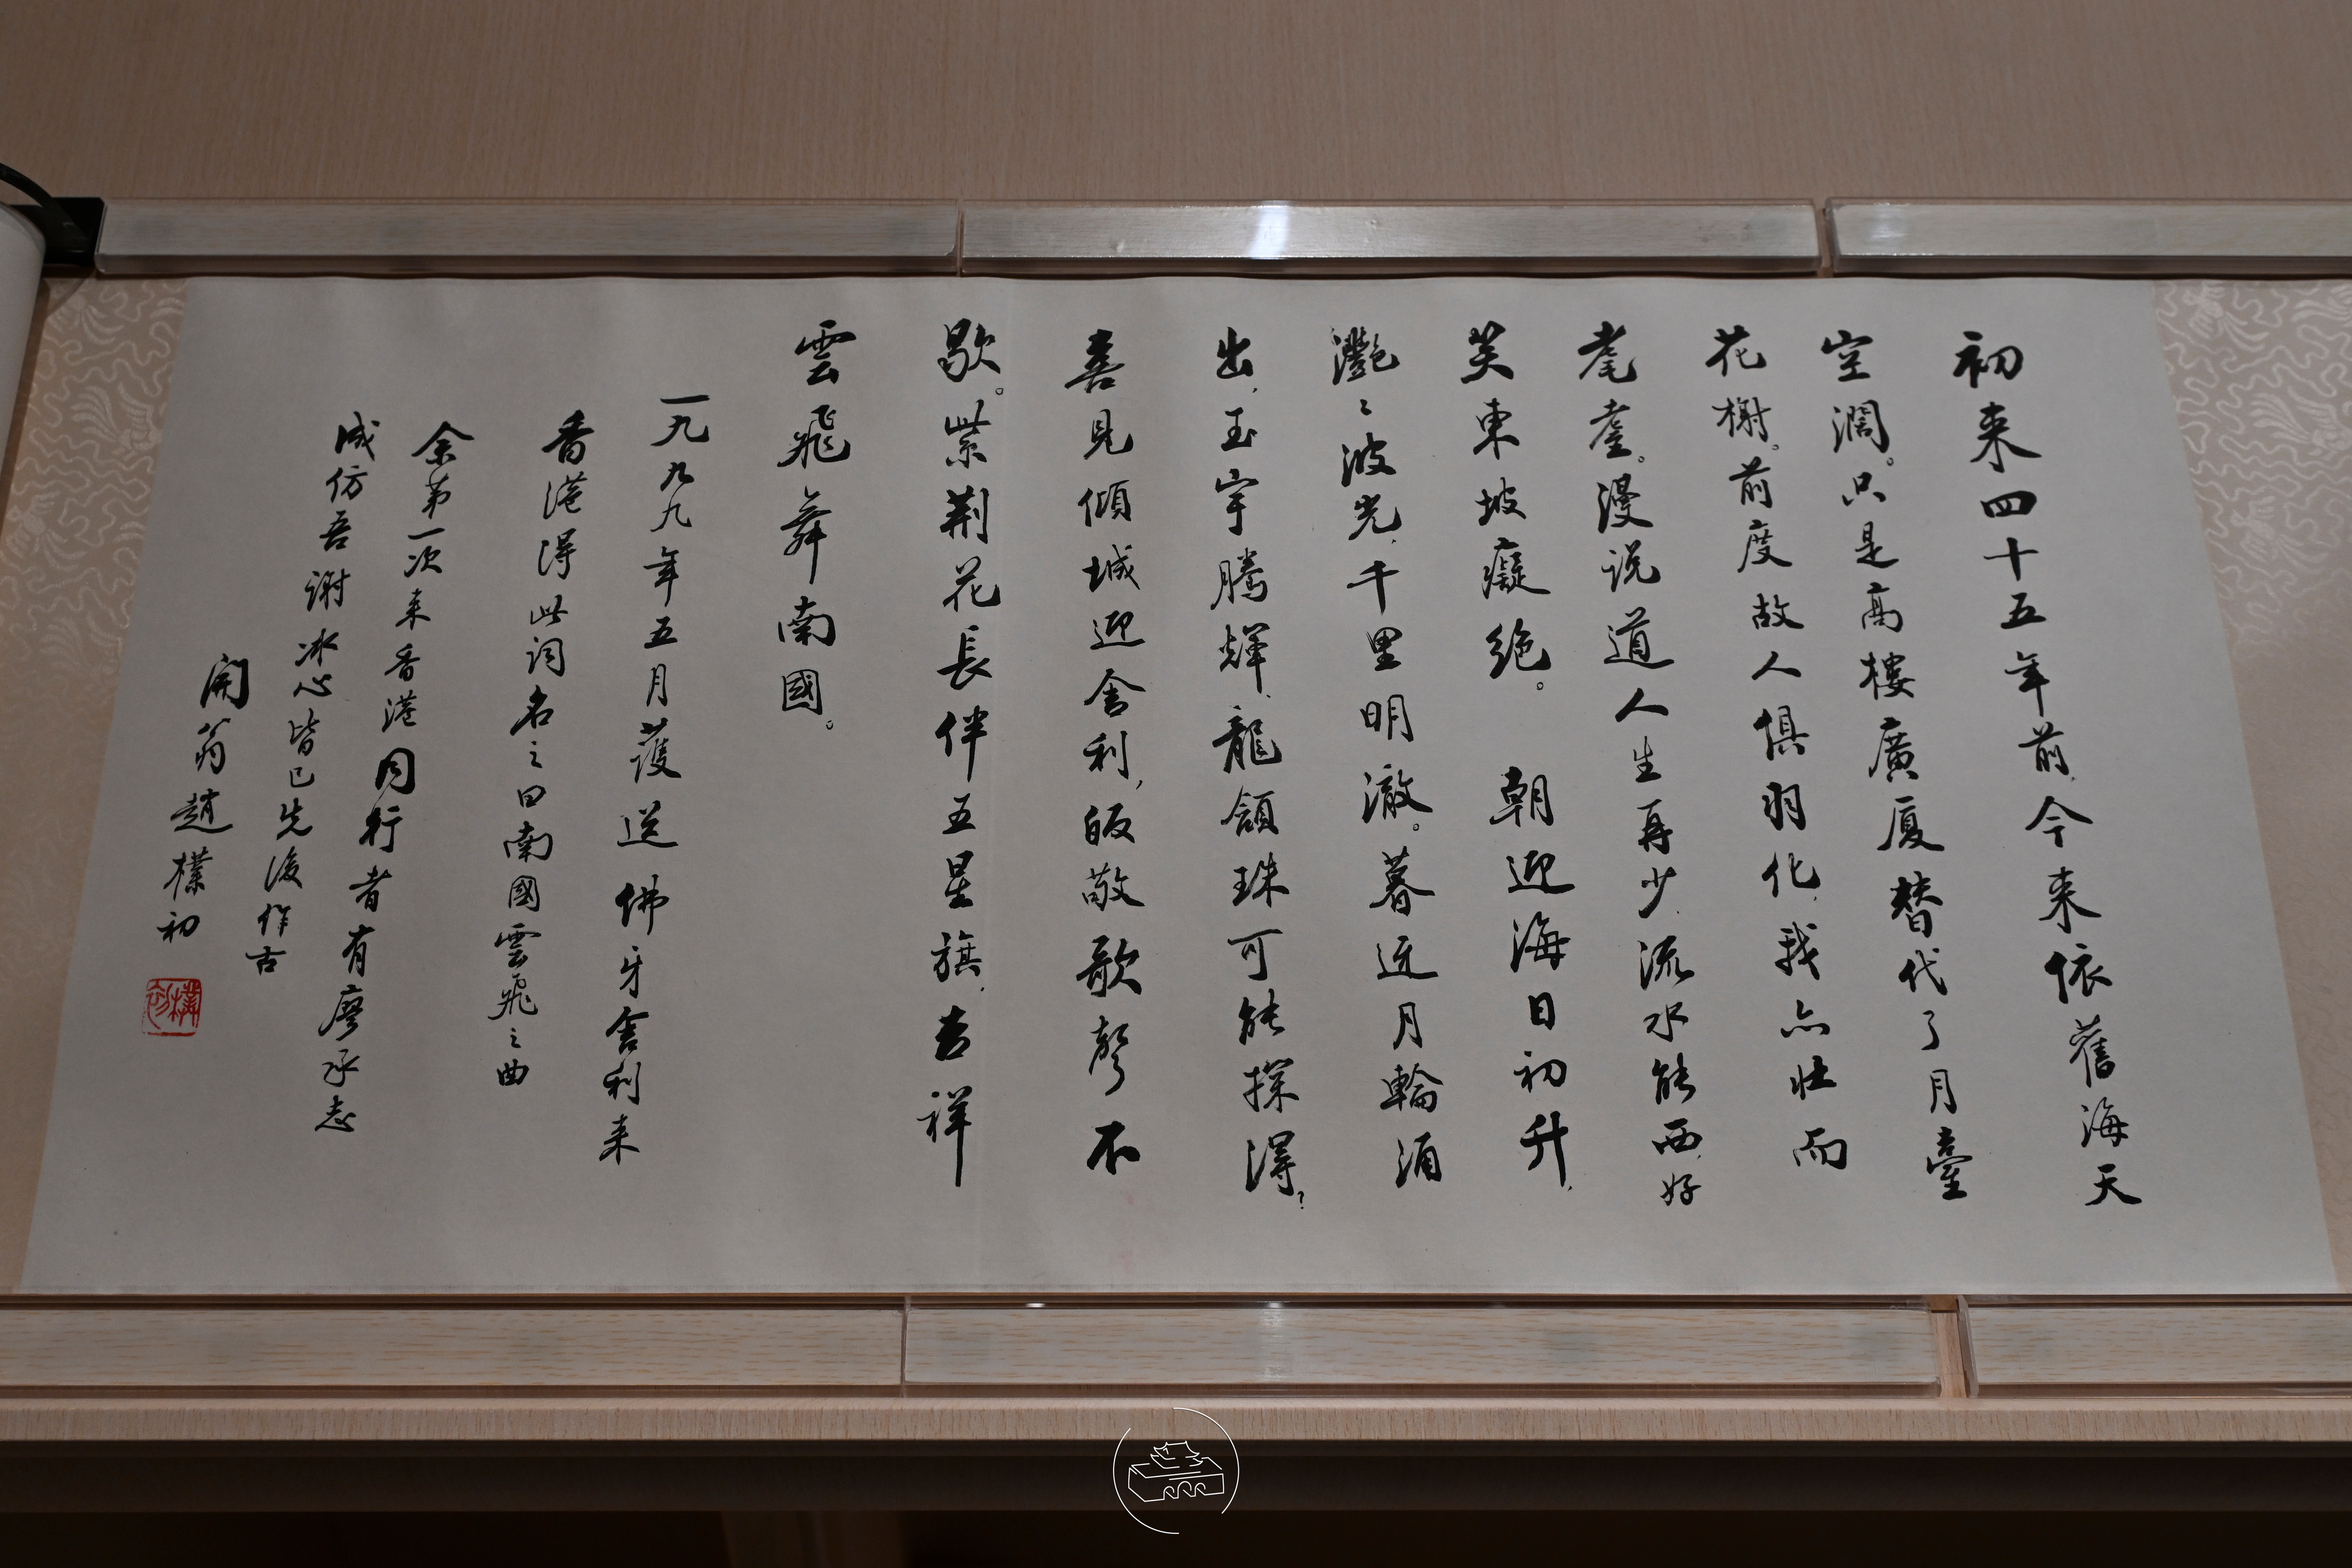 初来四十五年前，今来依舊海天
空濶。只是高樓廣厦替代了月臺
花榭。前度故人俱羽化，我亦壮而
耄耋。漫说道人生再少，流水能西，好
笑東坡癡绝。　朝迎海日初升，
灔〻波光，千里明澈。暮迓月輪涌
出，玉宇腾輝，龍頷珠可能探得？
喜見傾城迎舍利，皈敬歌聲不
歇。紫荆花長伴五星旗，吉祥
雲飛舞南國。
一九九九年五月護送佛牙舍利来
香港得此词名之曰南國雲飛之曲
余第一次来香港同行者有廖承志
成仿吾谢冰心皆已先後作古
開翁趙樸初
樸初